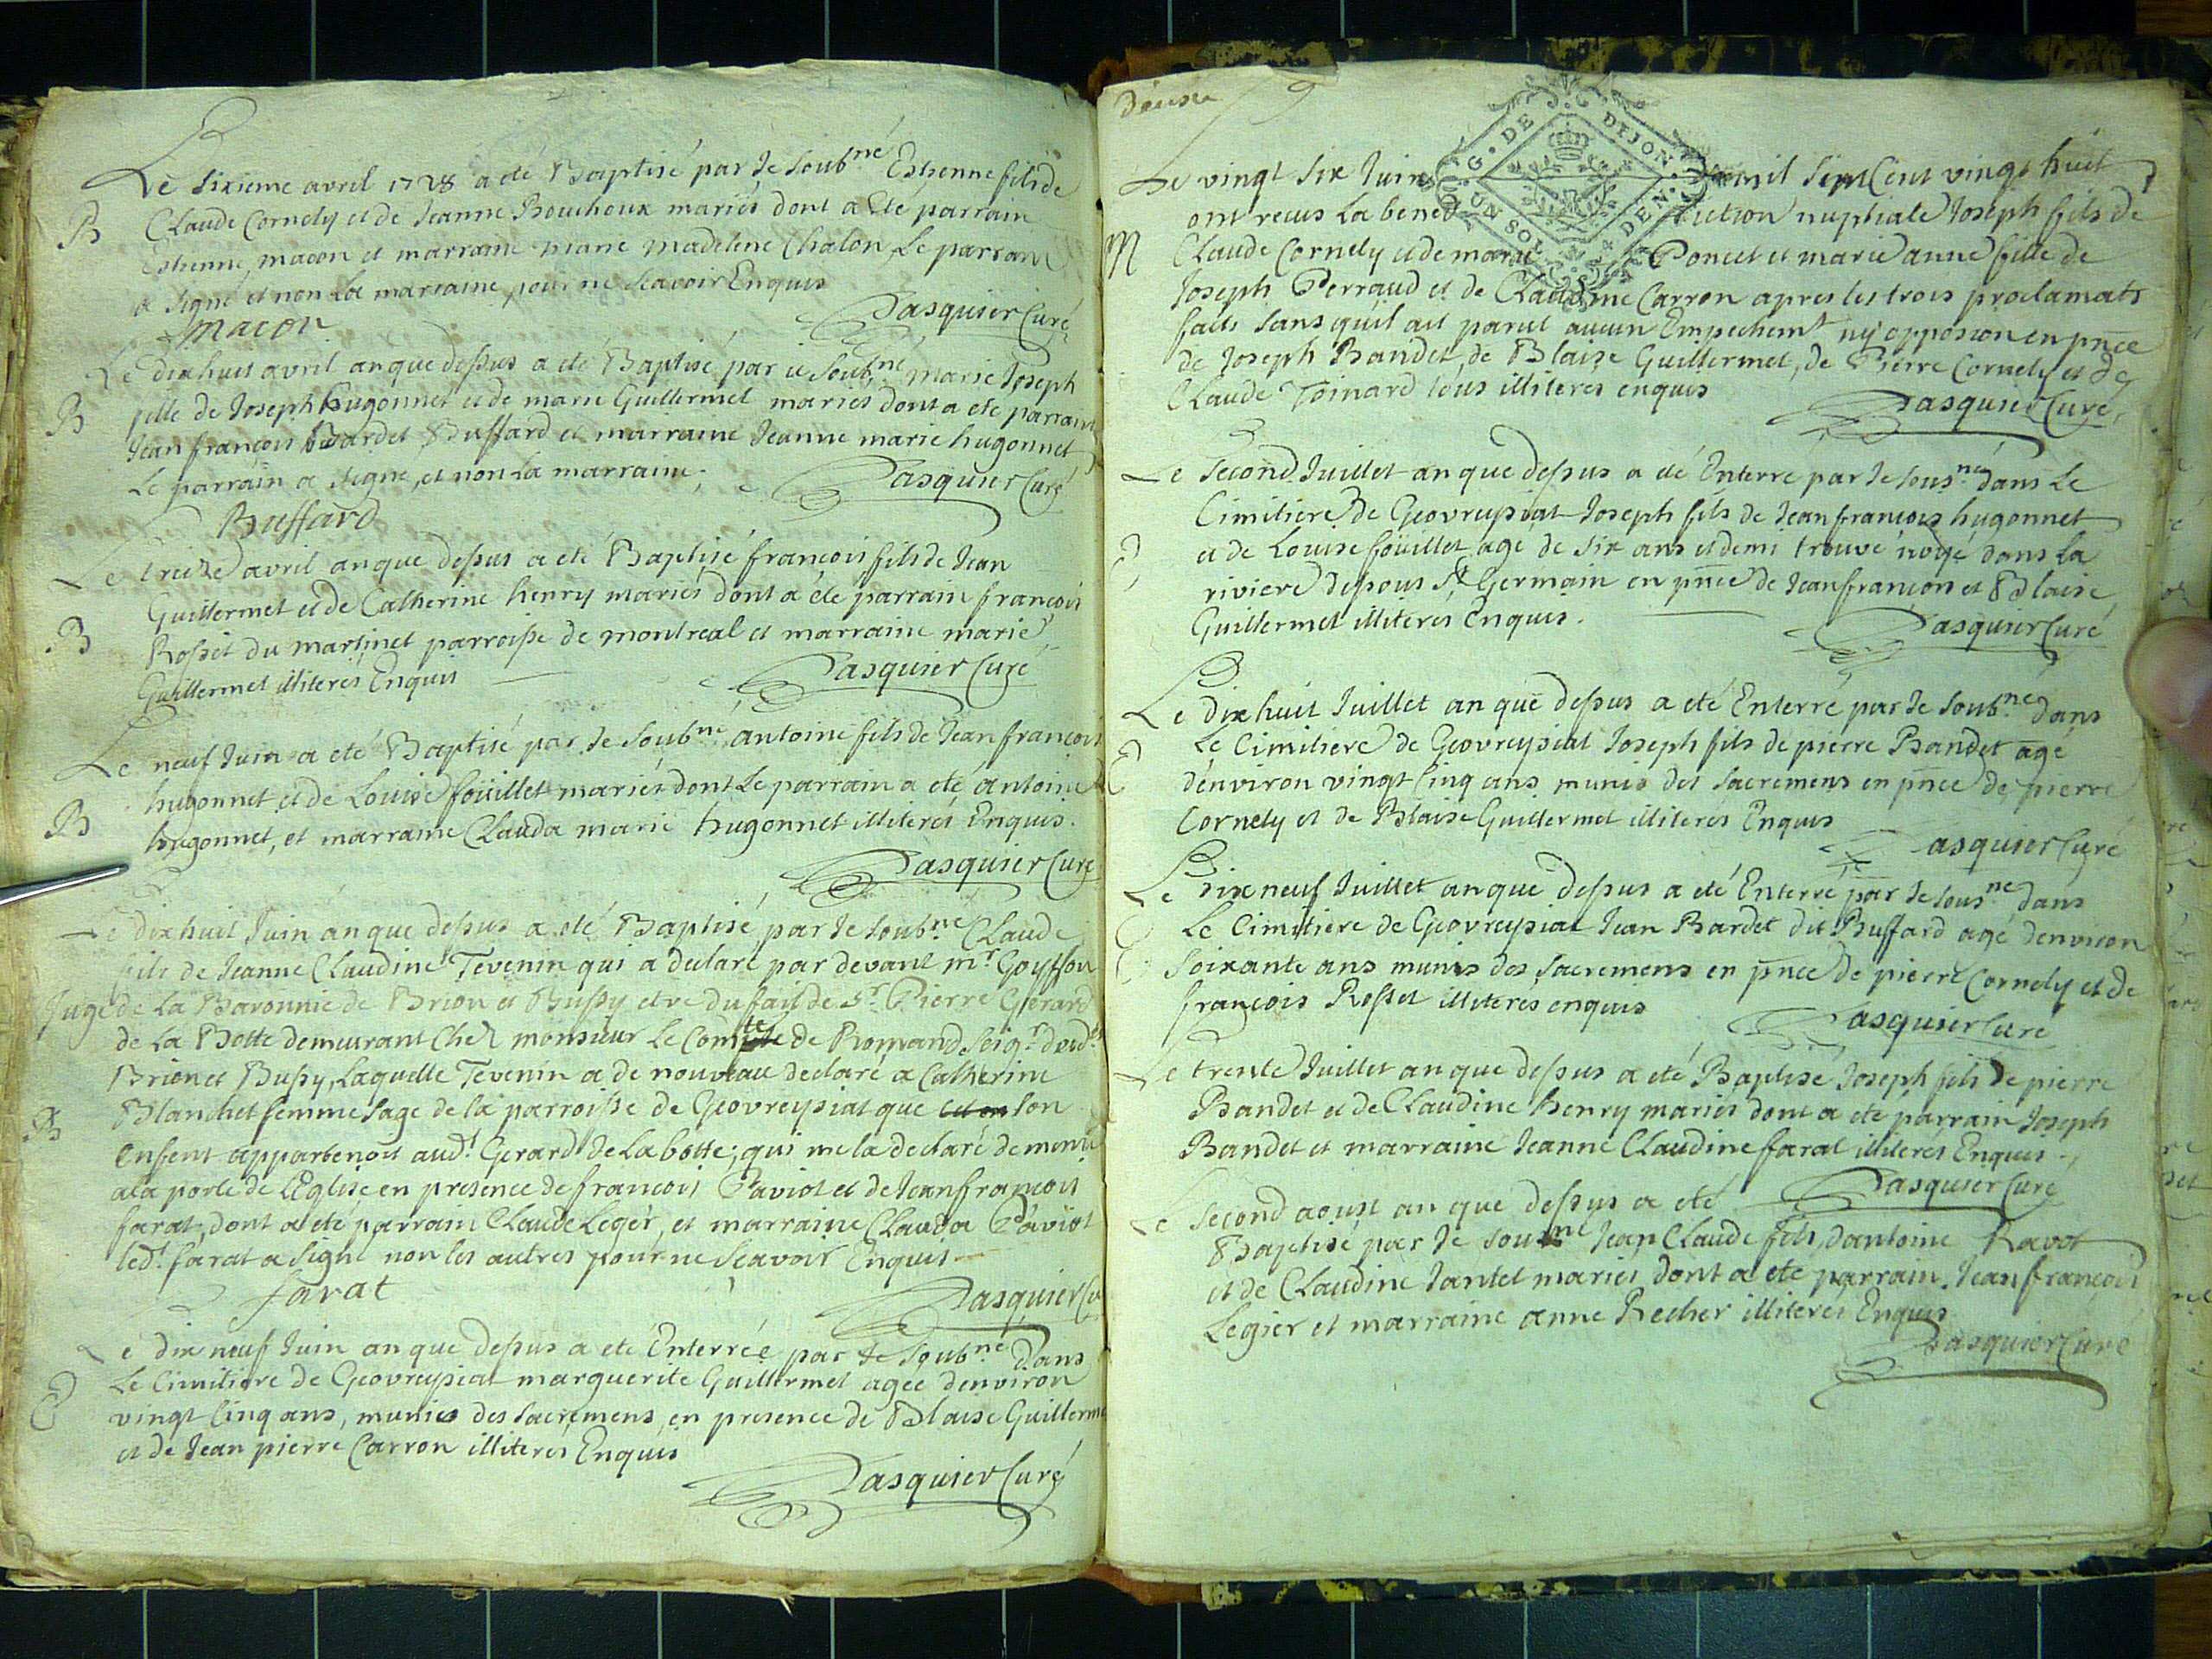 Le sixieme avril 1728 a eté Baptisé par Je soubné Estienne fils de
B Claude Cornely et de Jeanne Bouchoux mariés dont a Eté parrain
Estienne macon et marraine marie madelene Chalon Le parrain
a signé et non La marraine pour ne scavoir Enquis
macon Pasquier Curé
Le dixhuit avril an que dessus a eté Baptisé par je soubné marie Joseph
B fille de Joseph hugonnet et de marie Guillermet mariés dont a eté parrain
Jean francois Bardet Buffard et marraine Jeanne marie hugonnet
Le parrain a signe, et non La marraine.
Pasquier Curé
Buffard
Le treize avril an que dessus a eté Baptisé francois fils de Jean
Guillermet et de Catherine henry mariés dont a été parrain francois
B Rosset du martinet parroisse de montreal et marraine marie
Guillermet illiterés Enquis
Pasquier Curé
Le neuf Juin a eté Baptisé par Je soubné antoine fils de Jean francois
hugonnet et de Louise foüillet mariés dont Le parrain a eté antoine
B hugonnet, et marraine Clauda marie hugonnet illiterés Enquis.
Pasquier Curé
Le dixhuit Juin an que dessus a eté Baptisé par Je soubné Claude
fils de Jeanne Claudine Tevenin qui a declaré par devant mr Goyffon
Juge de La Baronnie de Brion et Bussy etre du fait de Sr Pierre Gerard
de La Botte demeurant Chez monsieur Le Comte de Romand Seigr dud.
Brion et Bussy, Laquelle Tevenin a de nouveau declaré a Catherine
B Blanchet femme sage de la parroisse de Geovreysiat que son
Enfent appartenoit audt Gerard de La botte; qui me la declaré de meme
a la porte de L'Eglise en presence de francois Paviot et de Jean francois
farat, dont a eté parrain Claude Leger, et marraine Clauda Paviot
ledt farat a signe non les autres pour ne scavoir Enquis
farat
Pasquier Cu
Le dix neuf Juin an que dessus a eté Enterrée par Je soubné dans
E Le Cimitiere de Geovreysiat marguerite Guillermet agée denviron
vingt Cinq ans, munies des sacremens, en presence de Blaise Guillerme
et de Jean pierre Carron illiterés Enquis
Pasquier Curé
9
G. DE DIJON
UN SOL DEN.
Le vingt six Juin mil Sept Cent vingt huit
ont recus La bened iction nuptiale Joseph fils de
M Claude Cornely et de marie Poncet et marie anne fille de
Joseph Perraud et de Claudine Carron apres les trois proclamats
faits sans qu'il ait parut aucun Empechemt ny opposion en pnce
de Joseph Bandet, de Blaise Guillermet, de Pierre Cornely et de
Claude Toinard tous illiterés enquis
Pasquier Curé
Le second Juillet an que dessus a eté Enterré par Je sousné dans Le
Cimitiere de Geovreysiat Joseph fils de Jean francois hugonnet
E et de Louise foüillet agé de six ans et demi trouvé noyé dans La
riviere dessous St Germain en pnce de Jean francois et Blaise
Guillermet illiterés Enquis.
Pasquier Curé
Le dixhuit Juillet an que dessus a eté Enterré par Je soubné dans
Le Cimitiere de Geovreysiat Joseph fils de pierre Bandet agé
E denviron vingt Cinq ans munis des sacremens en pnce de pierre
Cornely et de Blaise Guillermet illiterés Enquis
Pasquier Curé
Le dixneuf Juillet an que dessus a eté Enterré par Je sousné dans
E Le Cimitiere de Geovreysiat Jean Bardet dit Buffard agé denviron
soixante ans munis des sacremens en pnce de pierre Cornely et de
françois Rosset illiterés enquis
Pasquier Curé
Le trente Juillet an que dessus a eté Baptisé Joseph fils de pierre
Bandet et de Claudine henry mariés dont a eté parrain Joseph
Bandet et marraine Jeanne Claudine farat illiterés Enquis.
Pasquier Curé
Le second aoust an que dessus a eté
Baptisé par Je sousné Jean Claude fils dantoine Ravot
et de Claudine Jantet mariés dont a eté parrain Jean francois
Legier et marraine anne Recher illiterés Enquis
Pasquier Curé